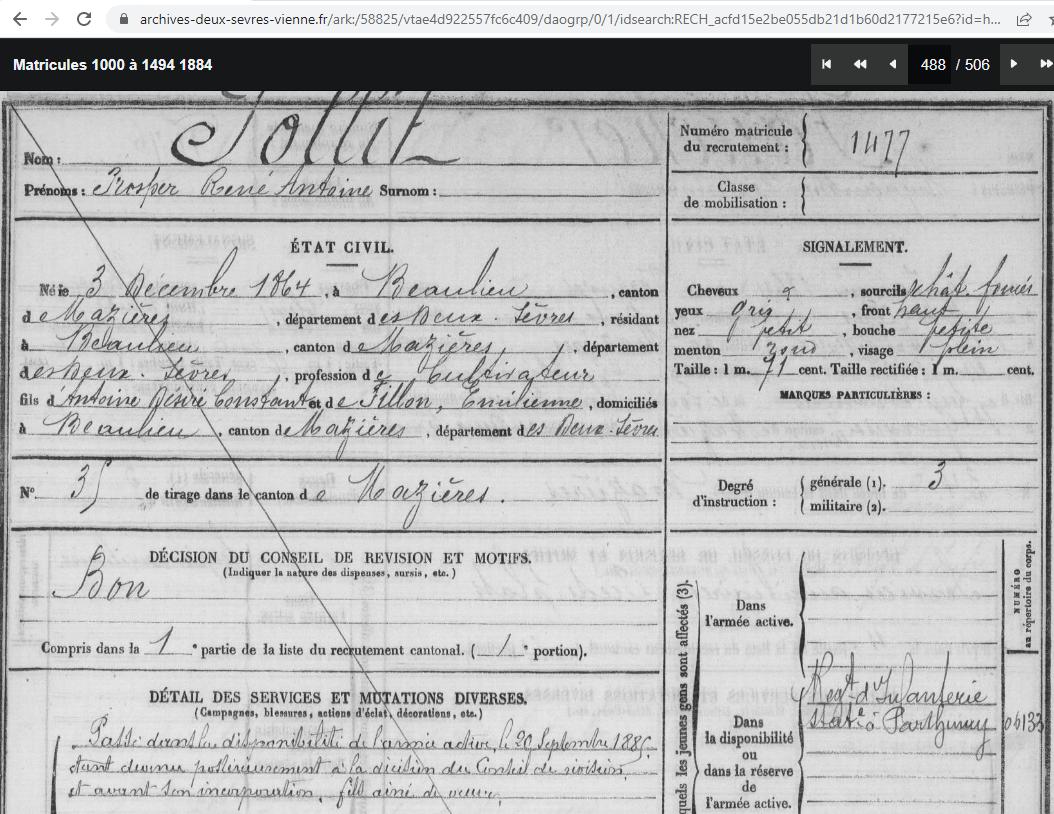 archives-deux-sevres-vienne.fr/ark:/58825/vtae4d922557fc6c409/daogrp/0/1/idsearch:RECH_acfd15e2be055db21d1b60d2177215e6?id=h...
Matricules 1000 à 1494 1884
488 / 506
Nom :
Prénoms : Prosper René Antoine Surnom :
Numéro matricule
du recrutement : 1477
Classe
de mobilisation :
ÉTAT CIVIL.
Né le 3 Décembre 1864, à Beaulieu, canton
de Mazières, département des Deux-Sèvres, résidant
à Beaulieu, canton de Mazières, département
des Deux Sèvres, profession de Cultivateur
fils d'Antoine Désiré Constant et de Fillon, Emilienne, domiciliés
à Beaulieu, canton de Mazières, département des Deux-Sèvres
SIGNALEMENT.
Cheveux, sourcils chât. foncés
yeux gris, front haut
nez petit, bouche petite
menton rond, visage plein
Taille : 1 m. 71 cent. Taille rectifiée : 1 m. cent.
MARQUES PARTICULIÈRES :
N° 35 de tirage dans le canton de Mazières.
Degré
d'instruction :
générale (1). 3
militaire (2).
DÉCISION DU CONSEIL DE REVISION ET MOTIFS.
(Indiquer la nature des dispenses, sursis, etc.)
Bon
Compris dans la 1 e partie de la liste du recrutement cantonal. (1 e portion).
DÉTAIL DES SERVICES ET MUTATIONS DIVERSES.
(Campagnes, blessures, actions d'éclat, décorations, etc.)
Passé dans la disponibilité de l'armée active, le 20 Septembre 1885.
étant devenu postérieurement à la décision du Conseil de révision,
et avant son incorporation, fils aîné de veuve.
quels les jeunes gens sont affectés (3).
Dans
l'armée active.
NUMÉRO
au répertoire du corps.
Regt d'Infanterie
staté à Parthenay 06133
Dans
la disponibilité
ou
dans la réserve
de
l'armée active.